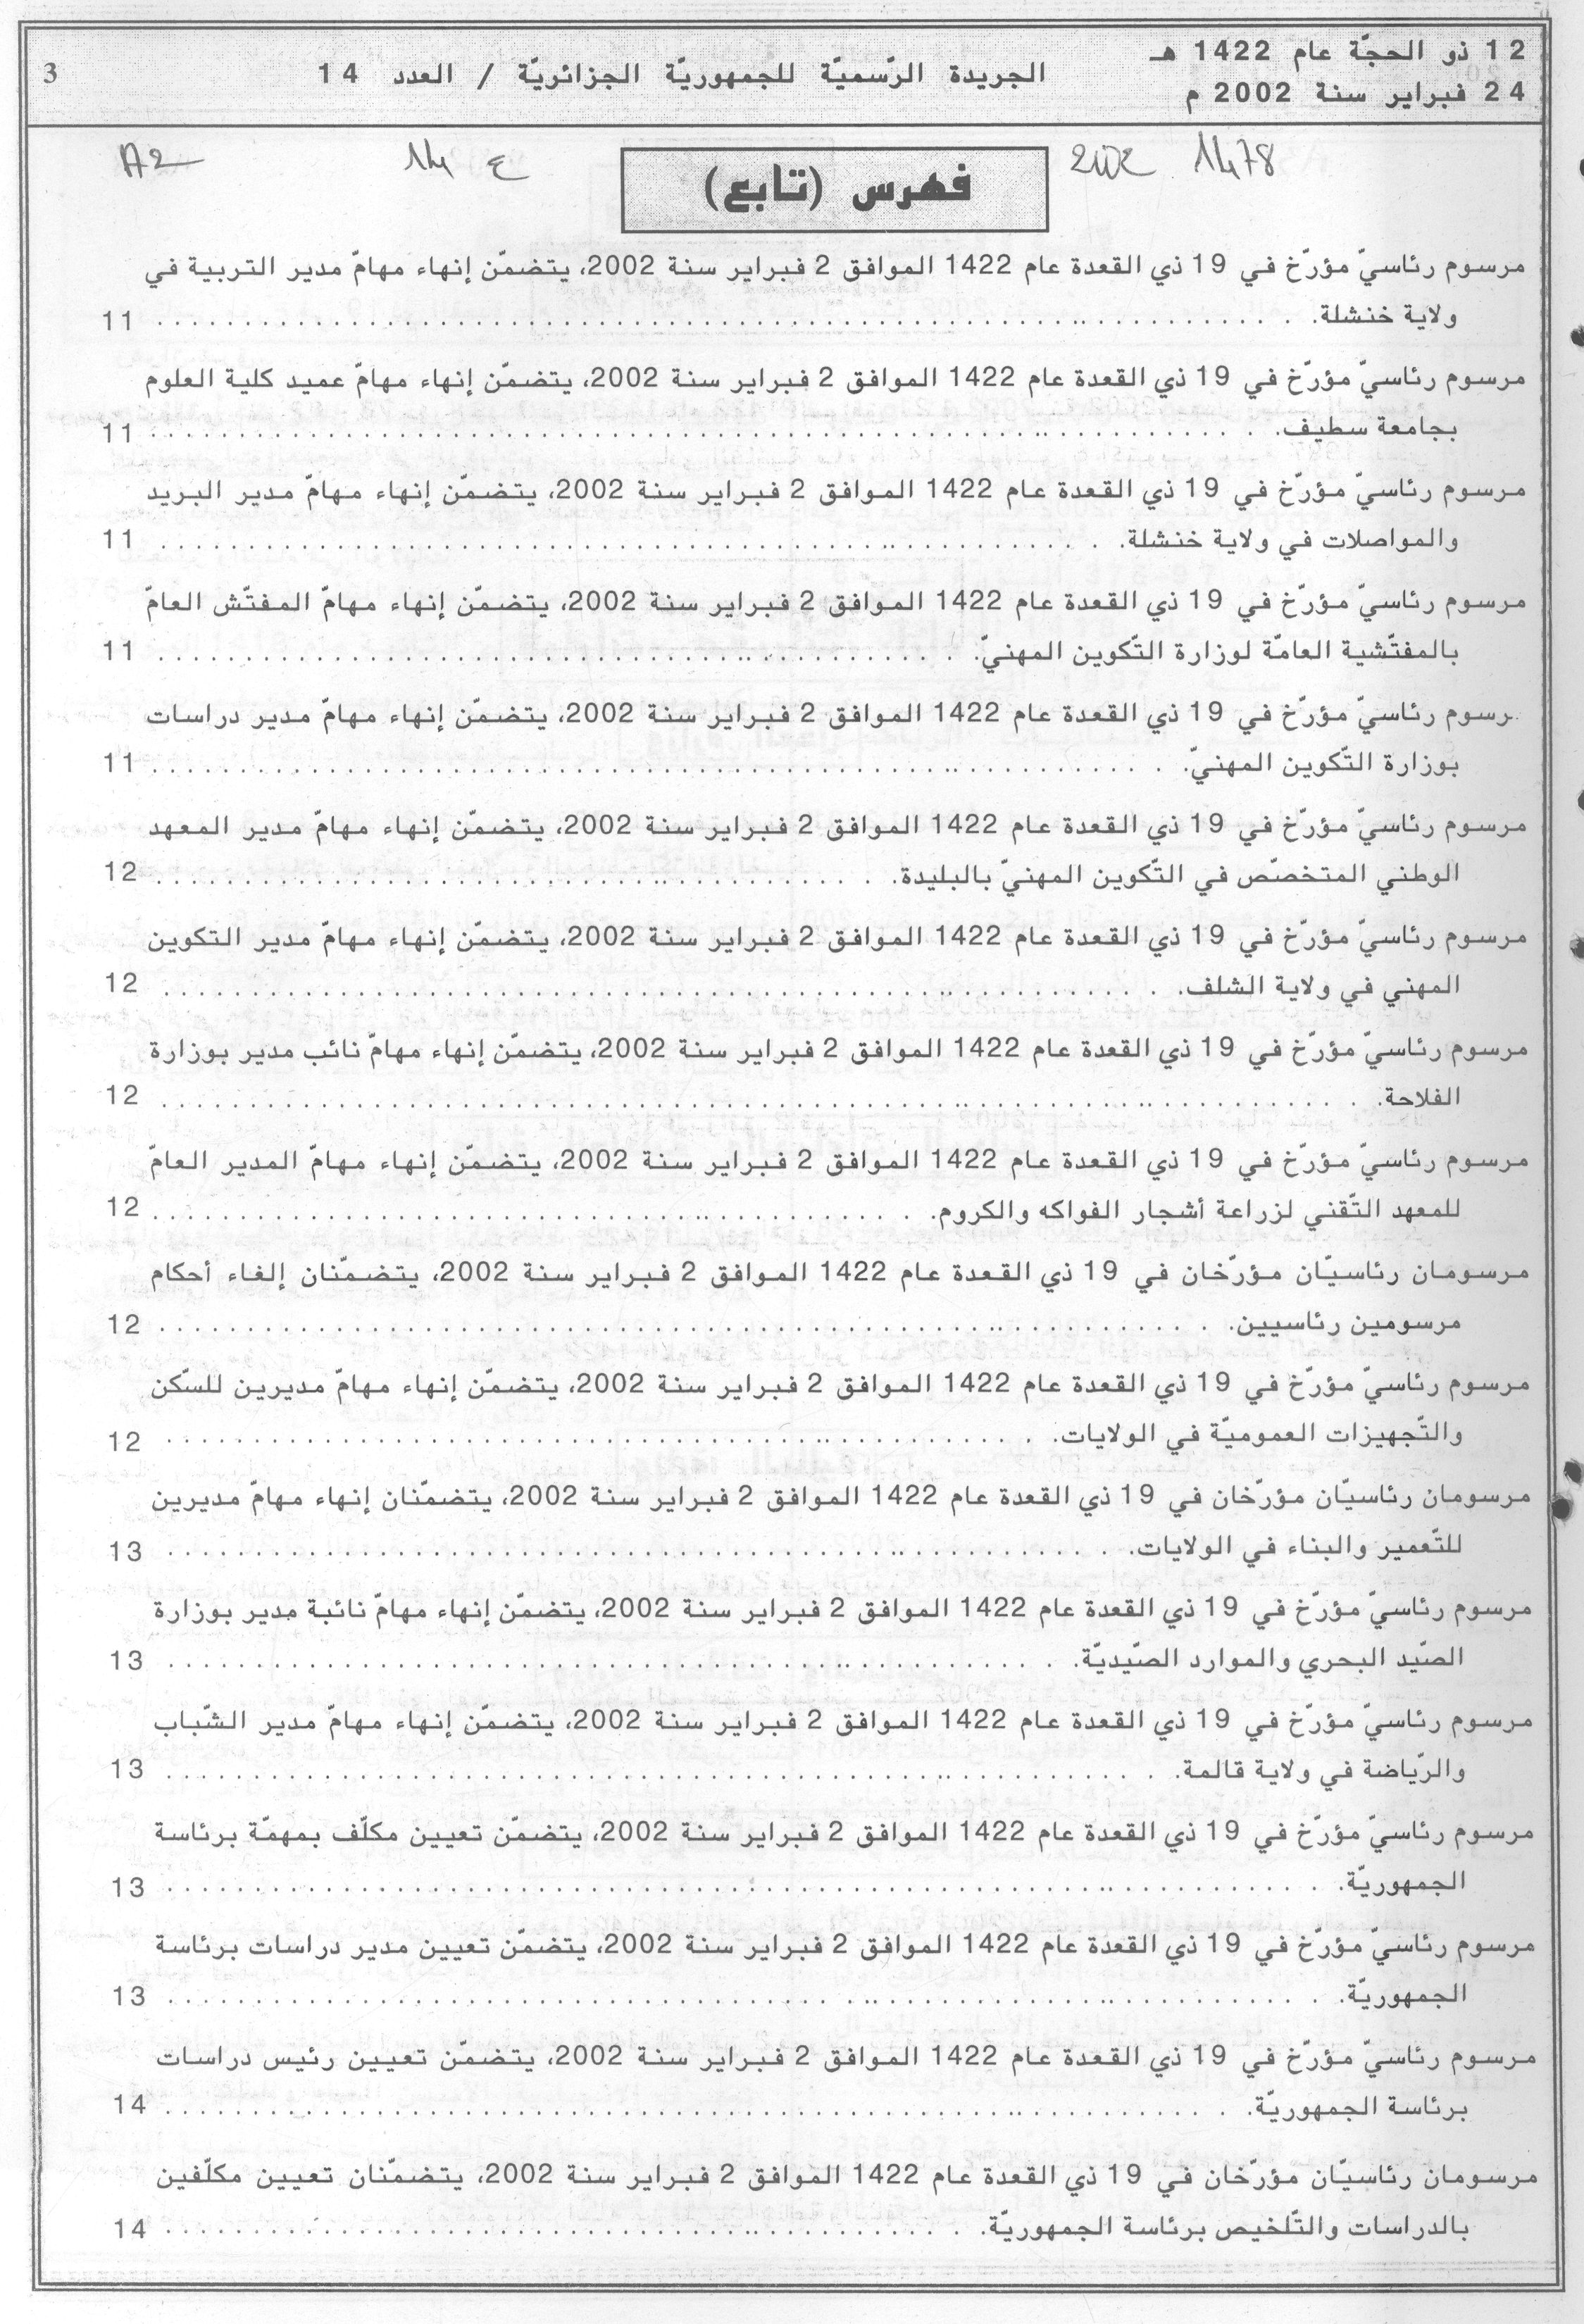 12 ذو الحجّة عام 1422 هـ
24 فبراير سنة 2002 م
الجريدة الرّسميّة للجمهوريّة الجزائريّة / العدد 14
3
A2
14 ع
2002 1478
فهرس (تابع)
مرسوم رئاسيّ مؤرّخ في 19 ذي القعدة عام 1422 الموافق 2 فبراير سنة 2002، يتضمّن إنهاء مهامّ مدير التربية في
ولاية خنشلة. . . . . . . . . . . . . . . . . . . . 11
مرسوم رئاسيّ مؤرّخ في 19 ذي القعدة عام 1422 الموافق 2 فبراير سنة 2002، يتضمّن إنهاء مهامّ عميد كلية العلوم
بجامعة سطيف. . . . . . . . . . . . . . . . . . . . 11
مرسوم رئاسيّ مؤرّخ في 19 ذي القعدة عام 1422 الموافق 2 فبراير سنة 2002، يتضمّن إنهاء مهامّ مدير البريد
والمواصلات في ولاية خنشلة. . . . . . . . . . . . . . . . . . . . 11
مرسوم رئاسيّ مؤرّخ في 19 ذي القعدة عام 1422 الموافق 2 فبراير سنة 2002، يتضمّن إنهاء مهامّ المفتّش العامّ
بالمفتّشية العامّة لوزارة التّكوين المهنيّ. . . . . . . . . . . . . . . . . . . . 11
مرسوم رئاسيّ مؤرّخ في 19 ذي القعدة عام 1422 الموافق 2 فبراير سنة 2002، يتضمّن إنهاء مهامّ مدير دراسات
بوزارة التّكوين المهنيّ. . . . . . . . . . . . . . . . . . . . 11
مرسوم رئاسيّ مؤرّخ في 19 ذي القعدة عام 1422 الموافق 2 فبراير سنة 2002، يتضمّن إنهاء مهامّ مدير المعهد
الوطني المتخصّص في التّكوين المهنيّ بالبليدة. . . . . . . . . . . . . . . . . . . . 12
مرسوم رئاسيّ مؤرّخ في 19 ذي القعدة عام 1422 الموافق 2 فبراير سنة 2002، يتضمّن إنهاء مهامّ مدير التكوين
المهني في ولاية الشلف. . . . . . . . . . . . . . . . . . . . 12
مرسوم رئاسيّ مؤرّخ في 19 ذي القعدة عام 1422 الموافق 2 فبراير سنة 2002، يتضمّن إنهاء مهامّ نائب مدير بوزارة
الفلاحة. . . . . . . . . . . . . . . . . . . . 12
مرسوم رئاسيّ مؤرّخ في 19 ذي القعدة عام 1422 الموافق 2 فبراير سنة 2002، يتضمّن إنهاء مهامّ المدير العامّ
للمعهد التّقني لزراعة أشجار الفواكه والكروم. . . . . . . . . . . . . . . . . . . . 12
مرسومان رئاسيّان مؤرّخان في 19 ذي القعدة عام 1422 الموافق 2 فبراير سنة 2002، يتضمّنان إلغاء أحكام
مرسومين رئاسيين. . . . . . . . . . . . . . . . . . . . 12
مرسوم رئاسيّ مؤرّخ في 19 ذي القعدة عام 1422 الموافق 2 فبراير سنة 2002، يتضمّن إنهاء مهامّ مديرين للسّكن
والتّجهيزات العموميّة في الولايات. . . . . . . . . . . . . . . . . . . . 12
مرسومان رئاسيّان مؤرّخان في 19 ذي القعدة عام 1422 الموافق 2 فبراير سنة 2002، يتضمّنان إنهاء مهامّ مديرين
للتّعمير والبناء في الولايات. . . . . . . . . . . . . . . . . . . . 13
مرسوم رئاسيّ مؤرّخ في 19 ذي القعدة عام 1422 الموافق 2 فبراير سنة 2002، يتضمّن إنهاء مهامّ نائبة مدير بوزارة
الصّيد البحري والموارد الصّيديّة. . . . . . . . . . . . . . . . . . . . 13
مرسوم رئاسيّ مؤرّخ في 19 ذي القعدة عام 1422 الموافق 2 فبراير سنة 2002، يتضمّن إنهاء مهامّ مدير الشّباب
والرّياضة في ولاية قالمة. . . . . . . . . . . . . . . . . . . . 13
مرسوم رئاسيّ مؤرّخ في 19 ذي القعدة عام 1422 الموافق 2 فبراير سنة 2002، يتضمّن تعيين مكلّف بمهمّة برئاسة
الجمهوريّة. . . . . . . . . . . . . . . . . . . . 13
مرسوم رئاسيّ مؤرّخ في 19 ذي القعدة عام 1422 الموافق 2 فبراير سنة 2002، يتضمّن تعيين مدير دراسات برئاسة
الجمهوريّة. . . . . . . . . . . . . . . . . . . . 13
مرسوم رئاسيّ مؤرّخ في 19 ذي القعدة عام 1422 الموافق 2 فبراير سنة 2002، يتضمّن تعيين رئيس دراسات
برئاسة الجمهوريّة. . . . . . . . . . . . . . . . . . . . 14
مرسومان رئاسيّان مؤرّخان في 19 ذي القعدة عام 1422 الموافق 2 فبراير سنة 2002، يتضمّنان تعيين مكلّفين
بالدراسات والتّلخيص برئاسة الجمهوريّة. . . . . . . . . . . . . . . . . . . . 14